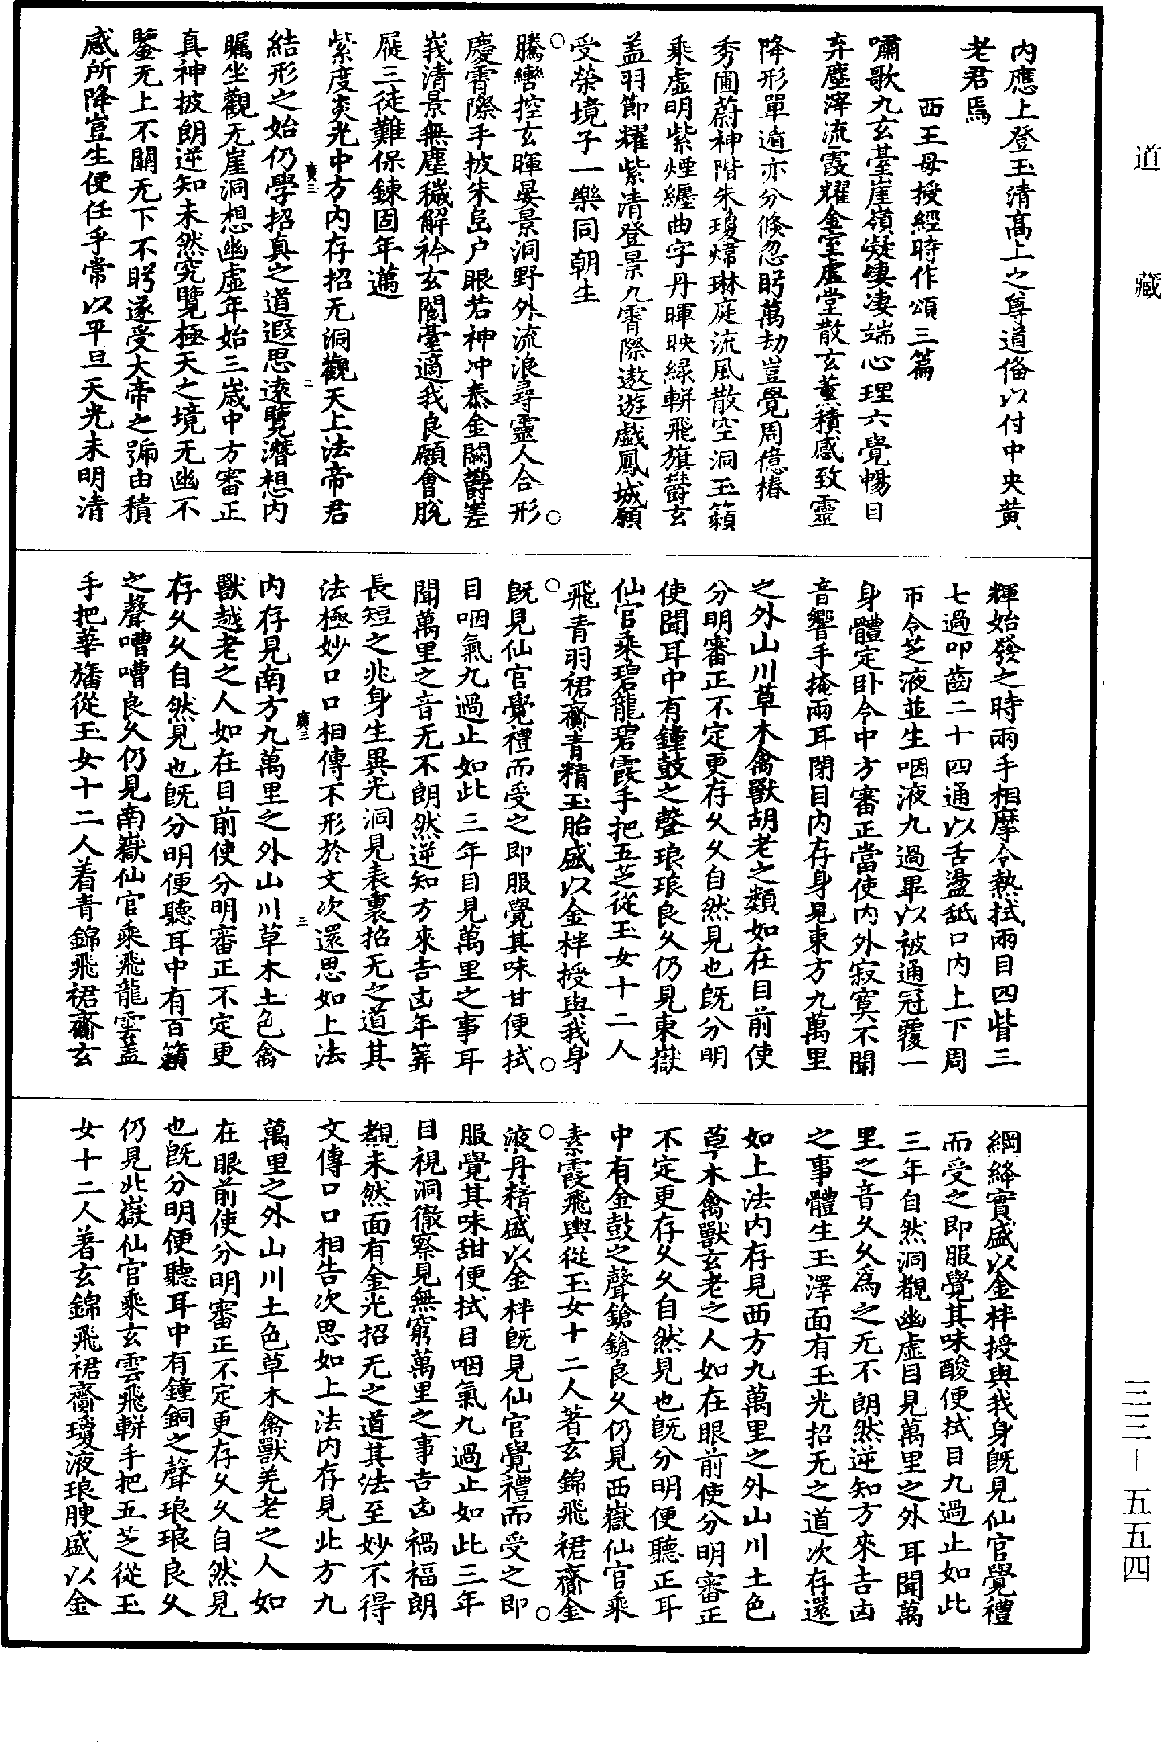 道藏
內應上登玉清高上之尊道備以付中央黃
老君焉
西王母授經時作頌三篇
嘯歌九玄臺崖嶺凝悽悽端心理六覺暢目
弃塵滓流霞耀金室虛堂散玄薰積感致靈
降形單道亦分倏忽眄萬劫豈覺周億椿
秀圃蔚神階朱瓊煒琳庭流風散空洞玉籟
乘虛明紫煙纏曲字丹暉映綠軿飛旗鬱玄
蓋羽節耀紫清登景九霄際遨遊戲鳳城願
受榮境子一樂同朝生
騰轡控玄暉晏景洞野外流浪尋靈人合形
慶霄際手披朱島户眼若神冲泰金闕鬱差
峩清景無塵穢解衿玄閣臺適我良願會脫
屣三徒難保鍊固年邁
紫度炎光中方内存招无洞觀天上法帝君
結形之始仍學招真之道遐思遠覽潛想内
矚坐觀无崖洞想幽虛年始三歲中方審正
真神披朗逆知未然究覽極天之境无幽不
鑒无上不關无下不眄遂受大帝之號由積
感所降豈生便任乎常以平旦天光未明清
輝始發之時兩手相摩令熱拭兩目四眥三
七過叩齒二十四通以舌盪舐口内上下周
帀令芝液並生咽液九過畢以被通冠覆一
身體定卧令中方審正當使内外寂寞不聞
音響手掩兩耳閉目内存身見東方九萬里
之外山川草木禽獸胡老之類如在目前使
分明審正不定更存久久自然見也既分明
使聞耳中有鐘鼓之聲琅琅良久仍見東嶽
仙官乘碧龍碧霞手把五芝從玉女十二人
飛青羽裙齎青精玉胎盛以金柈授與我身
既見仙官覺禮而受之即服覺其味甘便拭
目咽氣九過止如此三年目見萬里之事耳
聞萬里之音无不朗然逆知方來吉凶年筭
長短之兆身生異光洞見表裏招无之道其
法極妙口口相傳不形於文次還思如上法
内存見南方九萬里之外山川草木土色禽
獸越老之人如在目前使分明審正不定更
存久久自然見也既分明便聽耳中有百籟
之聲嘈嘈良久仍見南嶽仙官乘飛龍雲蓋
手把華旛從玉女十二人着青錦飛裙齎玄
綱絳實盛以金柈授與我身既見仙官覺禮
而受之即服覺其味酸便拭目九過止如此
三年自然洞覩幽虛目見萬里之外耳聞萬
里之音久久為之无不朗然逆知方來吉凶
之事體生玉澤面有玉光招无之道次存還
如上法内存見西方九萬里之外山川土色
草木禽獸玄老之人如在眼前使分明審正
不定更存久久自然見也既分明便聽正耳
中有金鼓之聲鎗鎗良久仍見西嶽仙官乘
素霞飛輿從玉女十二人著玄錦飛裙齎金
液丹精盛以金柈既見仙官覺禮而受之即
服覺其味甜便拭目咽氣九過止如此三年
目視洞徹察見無窮萬里之事吉凶禍福朗
覩未然面有金光招无之道其法至妙不得
文傳口口相告次思如上法内存見北方九
萬里之外山川土色草木禽獸羌老之人如
在眼前使分明審正不定更存久久自然見
也既分明便聽耳中有鐘銅之聲琅琅良久
仍見北嶽仙官乘玄雲飛軿手把五芝從玉
女十二人著玄錦飛裙齎瓊液琅腴盛以金
三三－五五四